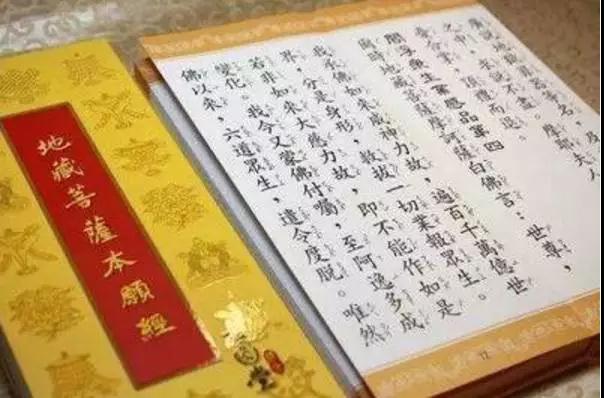 地藏菩薩本願經
器等名，及
之中，求說不盡。摩耶夫人
頂禮而退。
閻浮眾生業感品第四
爾時地藏菩薩摩訶薩白佛言：世尊，
我承佛如來威神力故，遍百千萬億世
界，分是身形，救拔一切業報眾生。
若非如來大慈力故，即不能作如是
變化。我今又蒙佛付囑，至阿逸多成
佛以來，六道眾生，遣令度脫。唯然